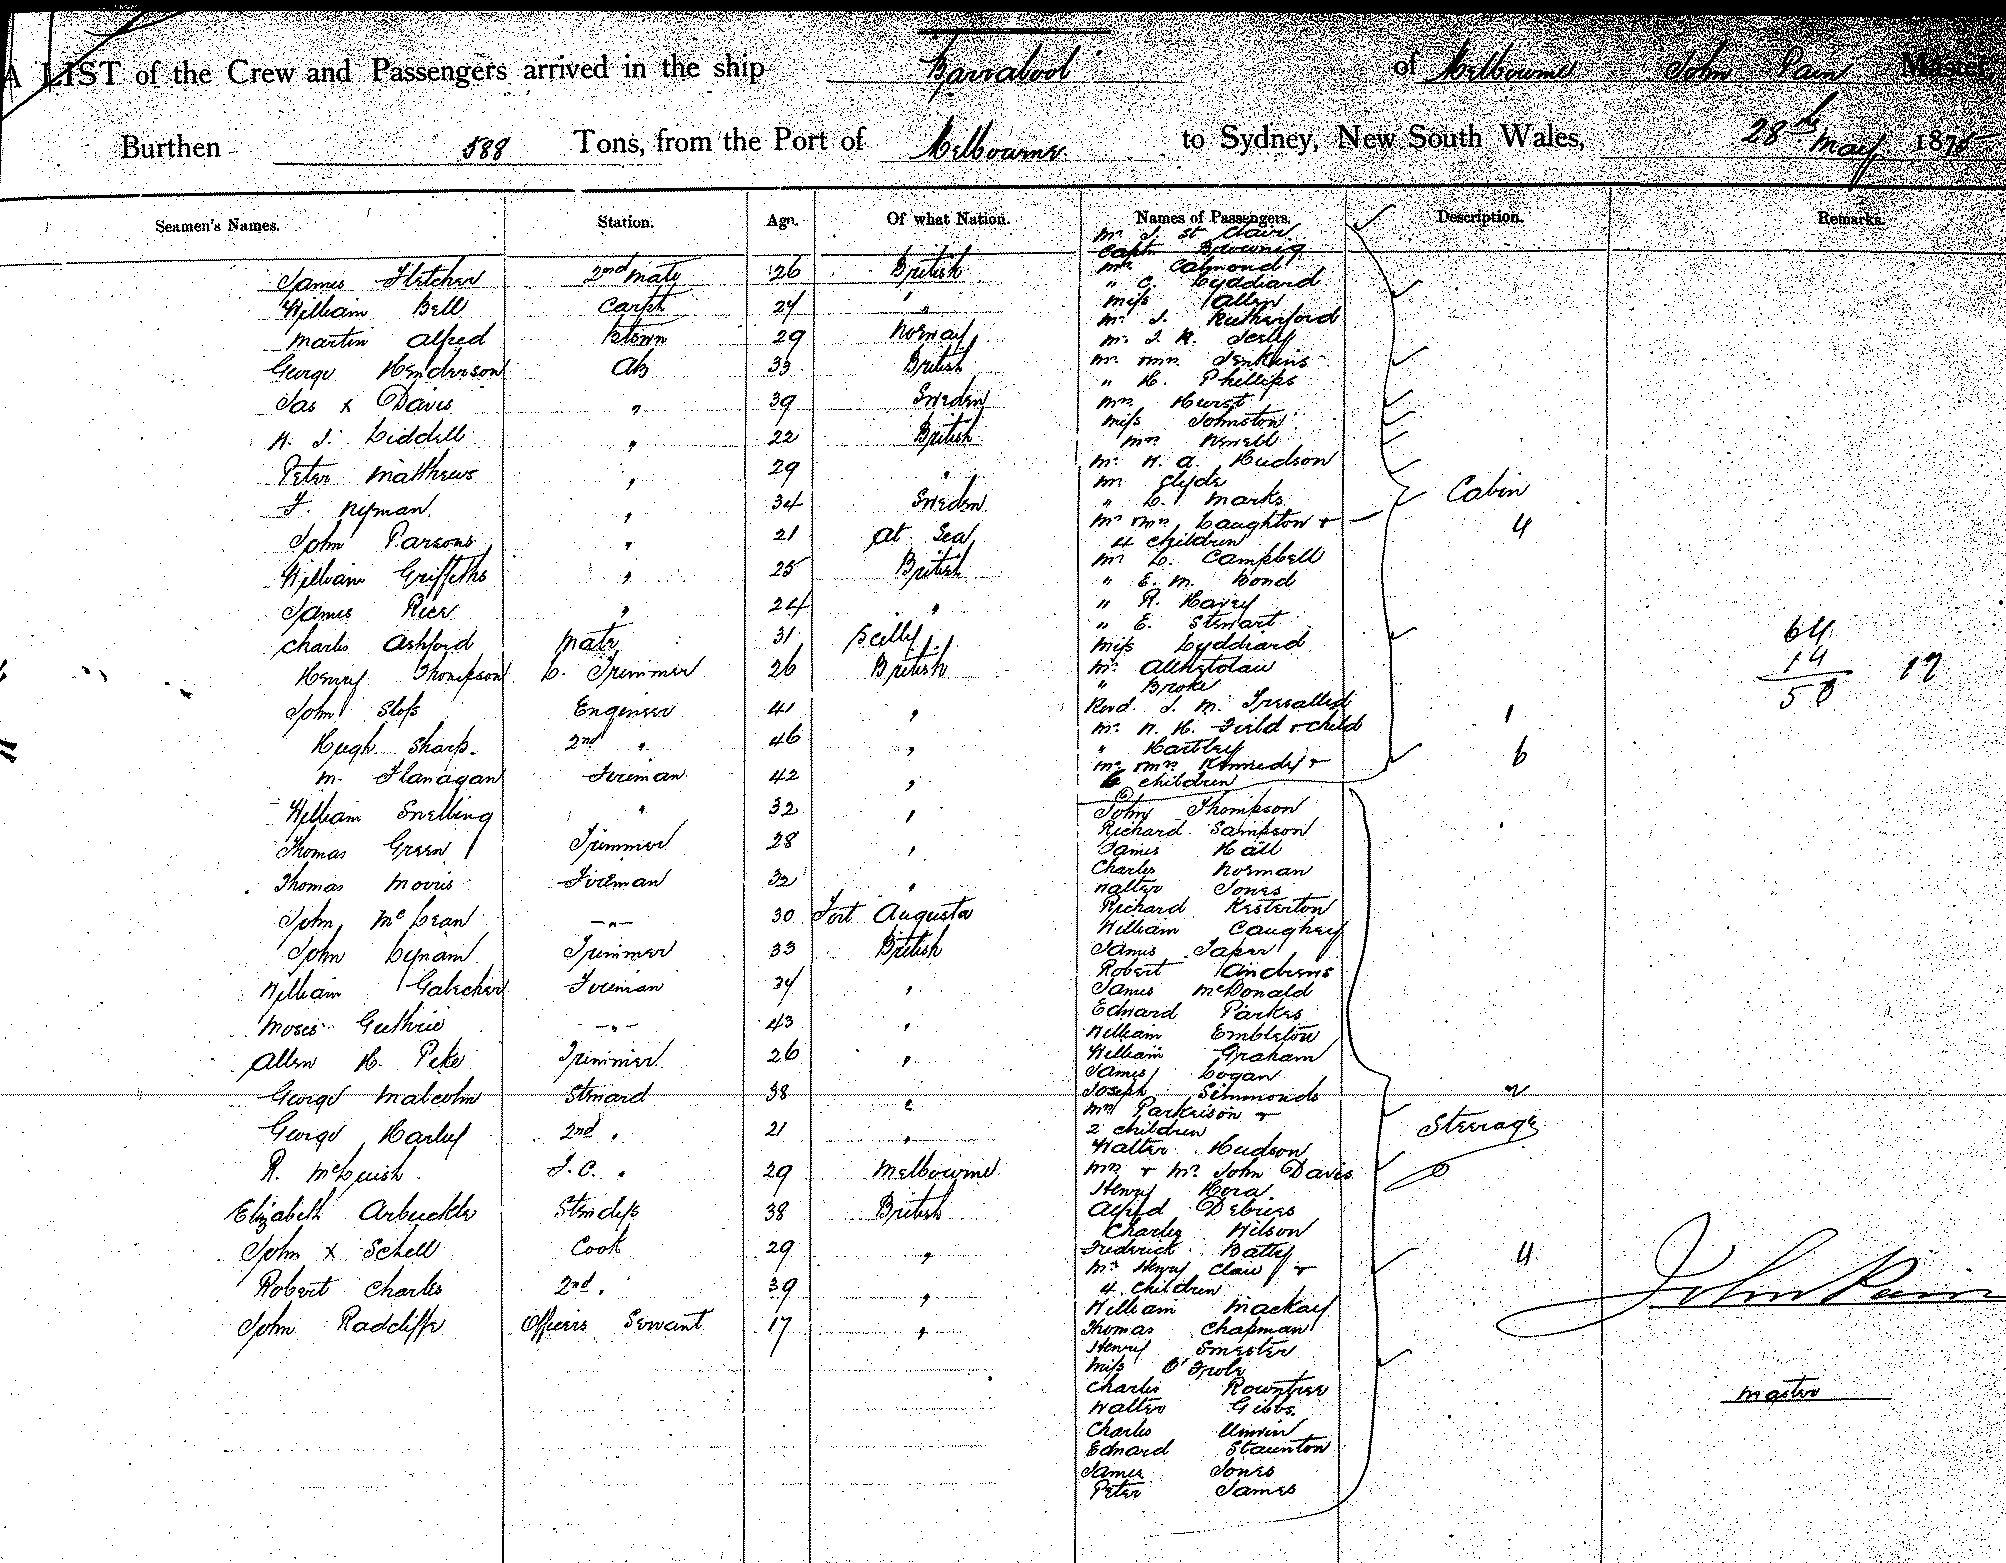 A LIST of the Crew and Passengers arrived in the ship Barrabool of Melbourne John Pain Master,
Burthen 588 Tons, from the Port of Melbourne to Sydney, New South Wales, 28th May 1875
Seamen's Names. Station. Age. Of what Nation. Names of Passengers. Description. Remarks.
James Fletcher 2nd Mate 26 British
William Bell Carptr 24 "
Martin Alfred Btswn 29 Norway
George Henderson AB 33 British
Jas x Davis " 39 Sweden
H. J. Liddell " 22 British
Peter Matthews " 29 "
F. Nyman " 34 Sweden
John Parsons " 21 At Sea
William Griffiths " 25 British
James Rice " 24 "
Charles Ashford Mate 31 Scilly
Henry Thompson L. Trimmer 26 British
John Sloss Engineer 41 "
Hugh Sharp 2nd " 46 "
M. Flanagan Fireman 42 "
William Snelling " 32 "
Thomas Green Trimmer 28 "
Thomas Morris Fireman 32 "
John McLean " 30 Fort Augusta
John Lynam Trimmer 33 British
William Galecher Fireman 34 "
Moses Guthrie " 43 "
Allen H. Peke Trimmer 26 "
George Malcolm Steward 38 "
George Harley 2nd " 21 "
R. McLuish F.C. " 29 Melbourne
Elizabeth Arbuckle Stewdess 38 British
John x Schell Cook 29 "
Robert Charles 2nd " 39 "
John Radcliffe Officers Servant 17 "
Mr J. St Clair
Capt Browning
Mr Calmond
" C. Lyddiard
Miss Allen
Mr J. Rutherford
Mr J. R.
Mr Mrs Jenkins
" H. Phillips
Mrs Hurst
Miss Johnston
Mrs Newell
Mr H. A. Hudson
Mr Clyde
" L. Marks
Mr Mrs Laughton &
4 children
Mr L. Campbell
" E. M. Bond
" R. Harey
" E. Stewart
Miss Lyddiard
Mr
" Broke
Revd J. M.
Mr N. H. Field & child
" Hartley
Mr Mrs Kennedy &
6 children
Cabin
4
1
6
John Thompson
Richard Sampson
James Hall
Charles Norman
Walter Jones
Richard Kesterton
William Caughey
James Taper
Robert Andrews
James McDonald
Edward Parkes
William Embleton
William Graham
James Logan
Joseph Simmonds
Mrs Parkeison &
2 children
Walter Hudson
Mrs & Mr John Davis
Henry Hera
Alfred Debiers
Charles Wilson
Frederick Batty
Mrs Henry Claw &
4 children
William Mackay
Thomas Chapman
Henry Smester
Miss O'
Charles Rowntree
Walter Gibbs
Charles Unwin
Edward Staunton
James Jones
Peter James
2
Steerage
4
64
14
50 17
John Pain
Master